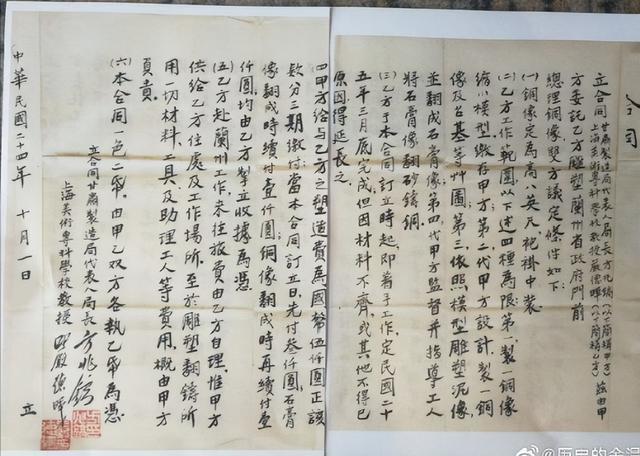 合同
立合同
甘肅製造局代表人局長方兆鎬(以下簡稱甲方)
上海美術專科學校教授嚴德暉(以下簡稱乙方)
茲由甲
方委託乙方雕塑蘭州省政府門前
總理銅像雙方議定條件如下:
(一)銅像定為高八英尺袍褂中裝
(二)乙方工作範圍以下述四種為限:第一、製一銅像
縮小模型繳存甲方,第二、代甲方設計製一銅
像及台基等草圖,第三、依照模型雕塑泥像
並翻成石膏像,第四、代甲方監督并指導工人
將石膏像翻砂鑄銅
(三)乙方于本合同訂立時起,即着手工作,定民國二十
五年三月底完成,但因材料不齊,或其他不得已
原因得延長之
四甲方給与乙方之塑造費為國幣伍仟圓正該
款分三期繳付:當本合同訂立日,先付叁仟圓,石膏
像翻成時續付壹仟圓,銅像翻成時再續付壹
仟圓,均由乙方掣立收據為憑
(五)乙方赴蘭州工作,来往旅費由乙方自理,惟甲方
供給乙方住處及工作場所,至於雕塑翻鑄所
用一切材料,工具及助理工人等費用,概由甲方
負責
(六)本合同一色二帋,由甲乙双方各執乙帋為憑
立合同甘肅製造局代表局長 方兆鎬
上海美術專科學校教授 嚴德暉 立
中華民國二十四年 十月一日